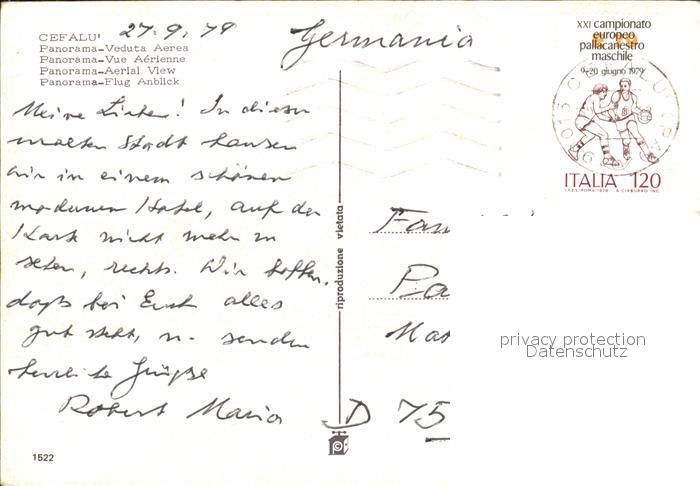 CEFALU' 27.9.79
Panorama-Veduta Aerea
Panorama-Vue Aérienne
Panorama-Aerial View
Panorama-Flug Anblick
Germania
Meine Lieben! In dieser
uralten Stadt hausen
wir in einem schönen
modernen Hotel, auf der
Karte nicht mehr zu
sehen, rechts. Wir hoffen,
daß bei Euch alles
gut steht, u. senden
herzliche Grüße
Robert Maria
1522
riproduzione vietata
XXI campionato
europeo
pallacanestro
maschile
9-20 giugno 1979
ITALIA 120
I.P.Z.S. ROMA 1979
Fam
Pa
Mas
D 75
privacy protection
Datenschutz